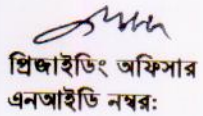 প্রিজাইডিং অফিসার
এনআইডি নম্বর: